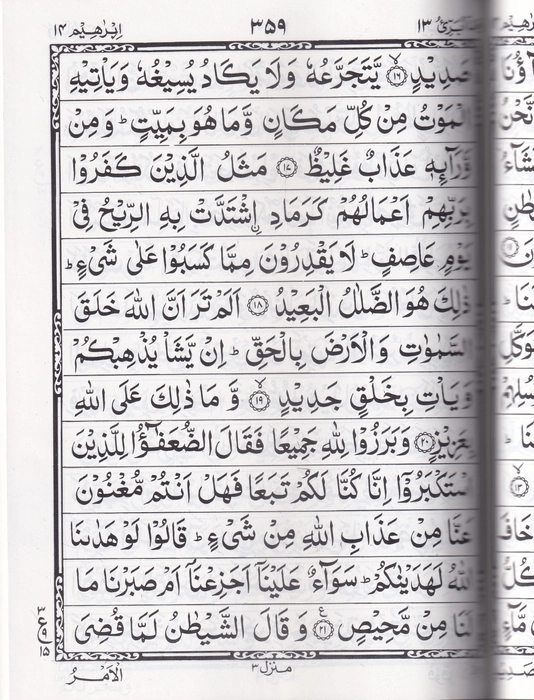 ابرٰهيم ١٤
٣٥٩
١٣
صَدِيْدٍ ۙ﴿١٦﴾ يَّتَجَرَّعُهٗ وَلَا يَكَادُ يُسِيْغُهٗ وَيَاْتِيْهِ
الْمَوْتُ مِنْ كُلِّ مَكَانٍ وَّمَا هُوَ بِمَيِّتٍ ؕ وَمِنْ
وَّرَآىِٕهٖ عَذَابٌ غَلِيْظٌ ﴿١٧﴾ مَثَلُ الَّذِيْنَ كَفَرُوْا
بِرَبِّهِمْ اَعْمَالُهُمْ كَرَمَادِ اۨشْتَدَّتْ بِهِ الرِّيْحُ فِيْ
يَوْمٍ عَاصِفٍ ؕ لَا يَقْدِرُوْنَ مِمَّا كَسَبُوْا عَلٰى شَيْءٍ ؕ
ذٰلِكَ هُوَ الضَّلٰلُ الْبَعِيْدُ ﴿١٨﴾ اَلَمْ تَرَ اَنَّ اللّٰهَ خَلَقَ
السَّمٰوٰتِ وَالْاَرْضَ بِالْحَقِّ ؕ اِنْ يَّشَاْ يُذْهِبْكُمْ
وَيَاْتِ بِخَلْقٍ جَدِيْدٍ ۙ﴿١٩﴾ وَّ مَا ذٰلِكَ عَلَى اللّٰهِ
بِعَزِيْزٍ ﴿٢٠﴾ وَبَرَزُوْا لِلّٰهِ جَمِيْعًا فَقَالَ الضُّعَفٰٓؤُا لِلَّذِيْنَ
اسْتَكْبَرُوْۤا اِنَّا كُنَّا لَكُمْ تَبَعًا فَهَلْ اَنْتُمْ مُّغْنُوْنَ
عَنَّا مِنْ عَذَابِ اللّٰهِ مِنْ شَيْءٍ ؕ قَالُوْا لَوْ هَدٰىنَا
اللّٰهُ لَهَدَيْنٰكُمْ ؕ سَوَآءٌ عَلَيْنَاۤ اَجَزِعْنَاۤ اَمْ صَبَرْنَا مَا
لَنَا مِنْ مَّحِيْصٍ ﴿٢١﴾ وَ قَالَ الشَّيْطٰنُ لَمَّا قُضِيَ
ع
١٥
الْاَمْرُ
منزل ٣